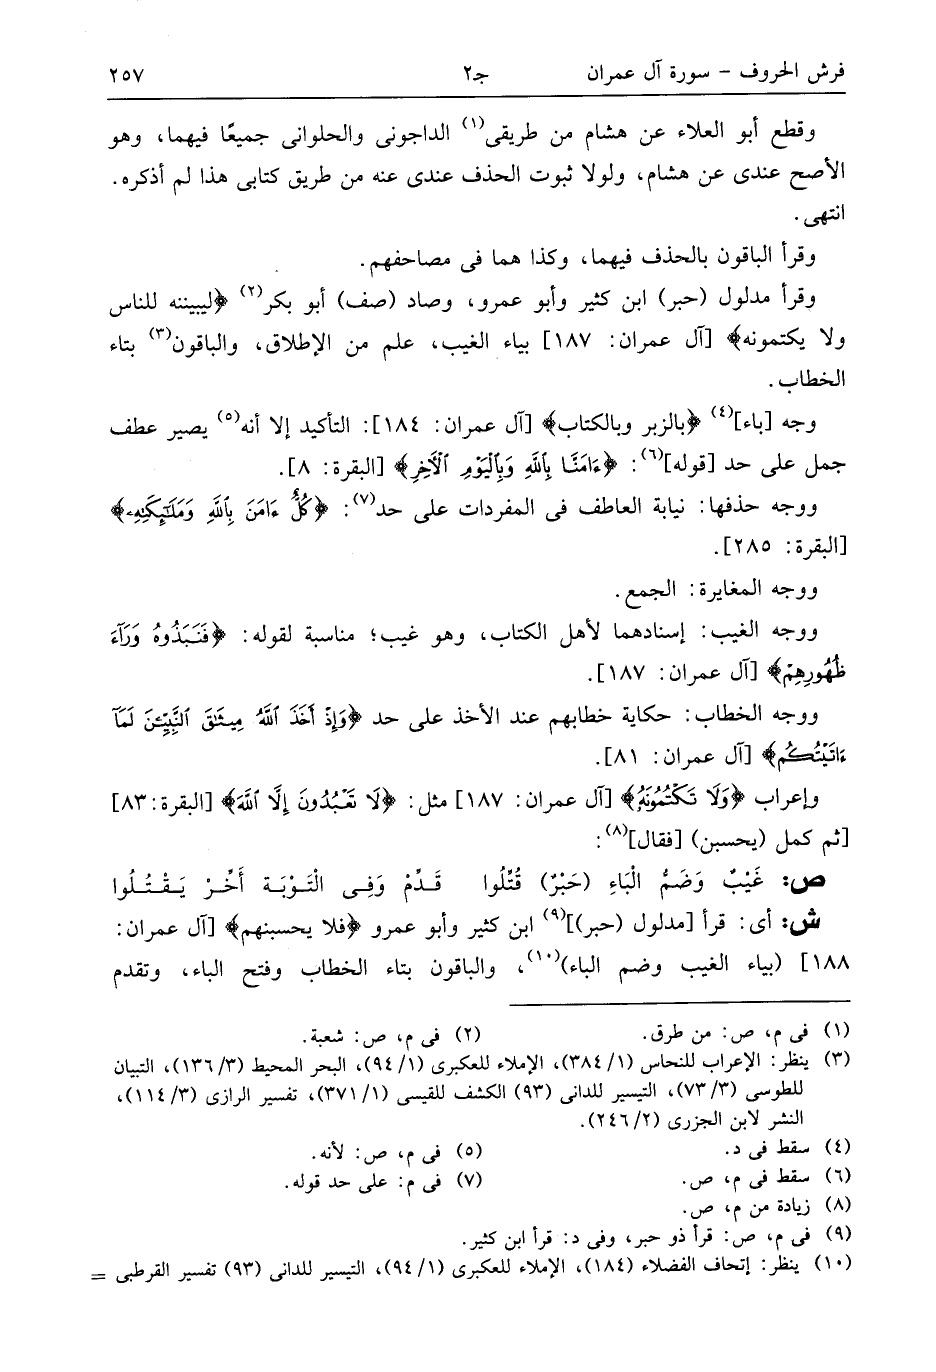 فرش الحروف – سورة آل عمران جـ٢ ٢٥٧
وقطع أبو العلاء عن هشام من طريقى(١) الداجونى والحلوانى جميعًا فيهما، وهو
الأصح عندى عن هشام، ولولا ثبوت الحذف عندى عنه من طريق كتابى هذا لم أذكره.
انتهى.
وقرأ الباقون بالحذف فيهما، وكذا هما فى مصاحفهم.
وقرأ مدلول (حبر) ابن كثير وأبو عمرو، وصاد (صف) أبو بكر(٢) ﴿ليبيننه للناس
ولا يكتمونه﴾ [آل عمران: ١٨٧] بياء الغيب، علم من الإطلاق، والباقون(٣) بتاء
الخطاب.
وجه [باء](٤) ﴿بالزبر وبالكتاب﴾ [آل عمران: ١٨٤]: التأكيد إلا أنه(٥) يصير عطف
جمل على حد [قوله](٦): ﴿ءَامَنَّا بِٱللَّهِ وَبِٱلْيَوْمِ ٱلْأَخِرِ﴾ [البقرة: ٨].
ووجه حذفها: نيابة العاطف فى المفردات على حد(٧): ﴿كُلٌّ ءَامَنَ بِٱللَّهِ وَمَلَـٰٓئِكَتِهِۦ﴾
[البقرة: ٢٨٥].
ووجه المغايرة: الجمع.
ووجه الغيب: إسنادهما لأهل الكتاب، وهو غيب؛ مناسبة لقوله: ﴿فَنَبَذُوهُ وَرَآءَ
ظُهُورِهِمْ﴾ [آل عمران: ١٨٧].
ووجه الخطاب: حكاية خطابهم عند الأخذ على حد ﴿وَإِذْ أَخَذَ ٱللَّهُ مِيثَـٰقَ ٱلنَّبِيِّـۧنَ لَمَآ
ءَاتَيْتُكُم﴾ [آل عمران: ٨١].
وإعراب ﴿وَلَا تَكْتُمُونَهُۥ﴾ [آل عمران: ١٨٧] مثل: ﴿لَا تَعْبُدُونَ إِلَّا ٱللَّهَ﴾ [البقرة: ٨٣]
[ثم كمل (يحسبن) [فقال](٨):
ص: غَيْبٌ وَضَمُّ الْبَاءِ (حَبْرٌ) قُتِّلُوا قَدِّمْ وَفِى التَّوْبَةِ أَخِّرْ يَقْتُلُوا
ش: أى: قرأ [مدلول (حبر)](٩) ابن كثير وأبو عمرو ﴿فلا يحسبنهم﴾ [آل عمران:
١٨٨] (بياء الغيب وضم الباء)(١٠)، والباقون بتاء الخطاب وفتح الباء، وتقدم
(١) فى م، ص: من طرق. (٢) فى م، ص: شعبة.
(٣) ينظر: الإعراب للنحاس (١/ ٣٨٤)، الإملاء للعكبرى (١/ ٩٤)، البحر المحيط (٣/ ١٣٦)، التبيان
للطوسى (٣/ ٧٣)، التيسير للدانى (٩٣) الكشف للقيسى (١/ ٣٧١)، تفسير الرازى (٣/ ١١٤)،
النشر لابن الجزرى (٢/ ٢٤٦).
(٤) سقط فى د. (٥) فى م، ص: لأنه.
(٦) سقط فى م، ص. (٧) فى م: على حد قوله.
(٨) زيادة من م، ص.
(٩) فى م، ص: قرأ ذو حبر، وفى د: قرأ ابن كثير.
(١٠) ينظر: إتحاف الفضلاء (١٨٤)، الإملاء للعكبرى (١/ ٩٤)، التيسير للدانى (٩٣) تفسير القرطبى =